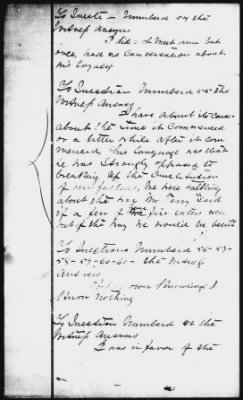 To Question Numbered 54 the
Witness Answers
I did: I Met him but
once, had no Conversation about
his Loyalty
To Question Numbered 55 the
Witness Answers
I have about its
about the time it Commenced
or a little while after it com
menced, his language was that
he was Strongly opposed to
breaking up the Constitution
of our fathers, We were talking
about the way Mr Terry Said
if a few of our fire eaters was
out of the way we would be better
To Questions Numbered 56-57-
58-59-60-61- the Witness
Answers
Of my own Knowledge I
Know Nothing
To Question Numbered 62 the
Witness Answers
I was in favor of the